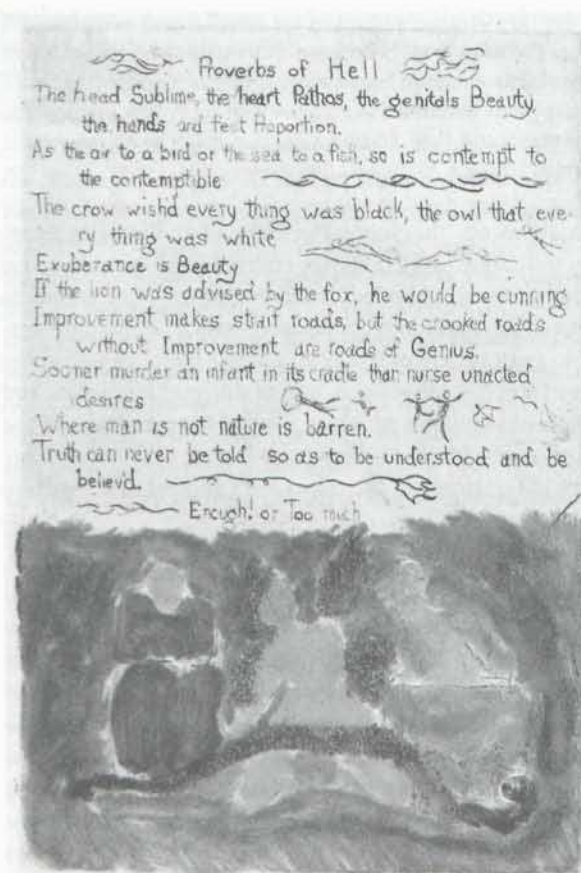 Proverbs of Hell
The head Sublime, the heart Pathos, the genitals Beauty,
the hands and feet Proportion.
As the air to a bird or the sea to a fish, so is contempt to
the contemptible
The crow wish'd every thing was black, the owl that eve-
ry thing was white
Exuberance is Beauty
If the lion was advised by the fox, he would be cunning
Improvement makes strait roads, but the crooked roads
without Improvement are roads of Genius.
Sooner murder an infant in its cradle than nurse unacted
desires
Where man is not nature is barren.
Truth can never be told so as to be understood and be
believ'd.
Enough! or Too much